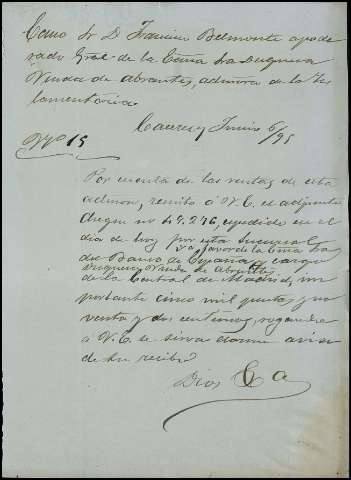 Excmo Sr D. Francisco Belmonte apode
rado Gral de la Excma Sra Duquesa
Viuda de Abrantes, admora de la Tes
tamentaria.
Caceres y Junio 6/95
Nº 15
Por cuenta de las rentas de esta
admon, remito á V.E. el adjunto
cheque no 49.276, espedido en el
dia de hoy por esta Sucursal
y a favor de la Excma Sra
del Banco de España a cargo
Duquesa Viuda de Abrantes
de la Central de Madrid, im
portante cinco mil pesetas y no
venta y dos centimos, rogandole
á V.E. se sirva darme aviso
de su recibo
Dios &a